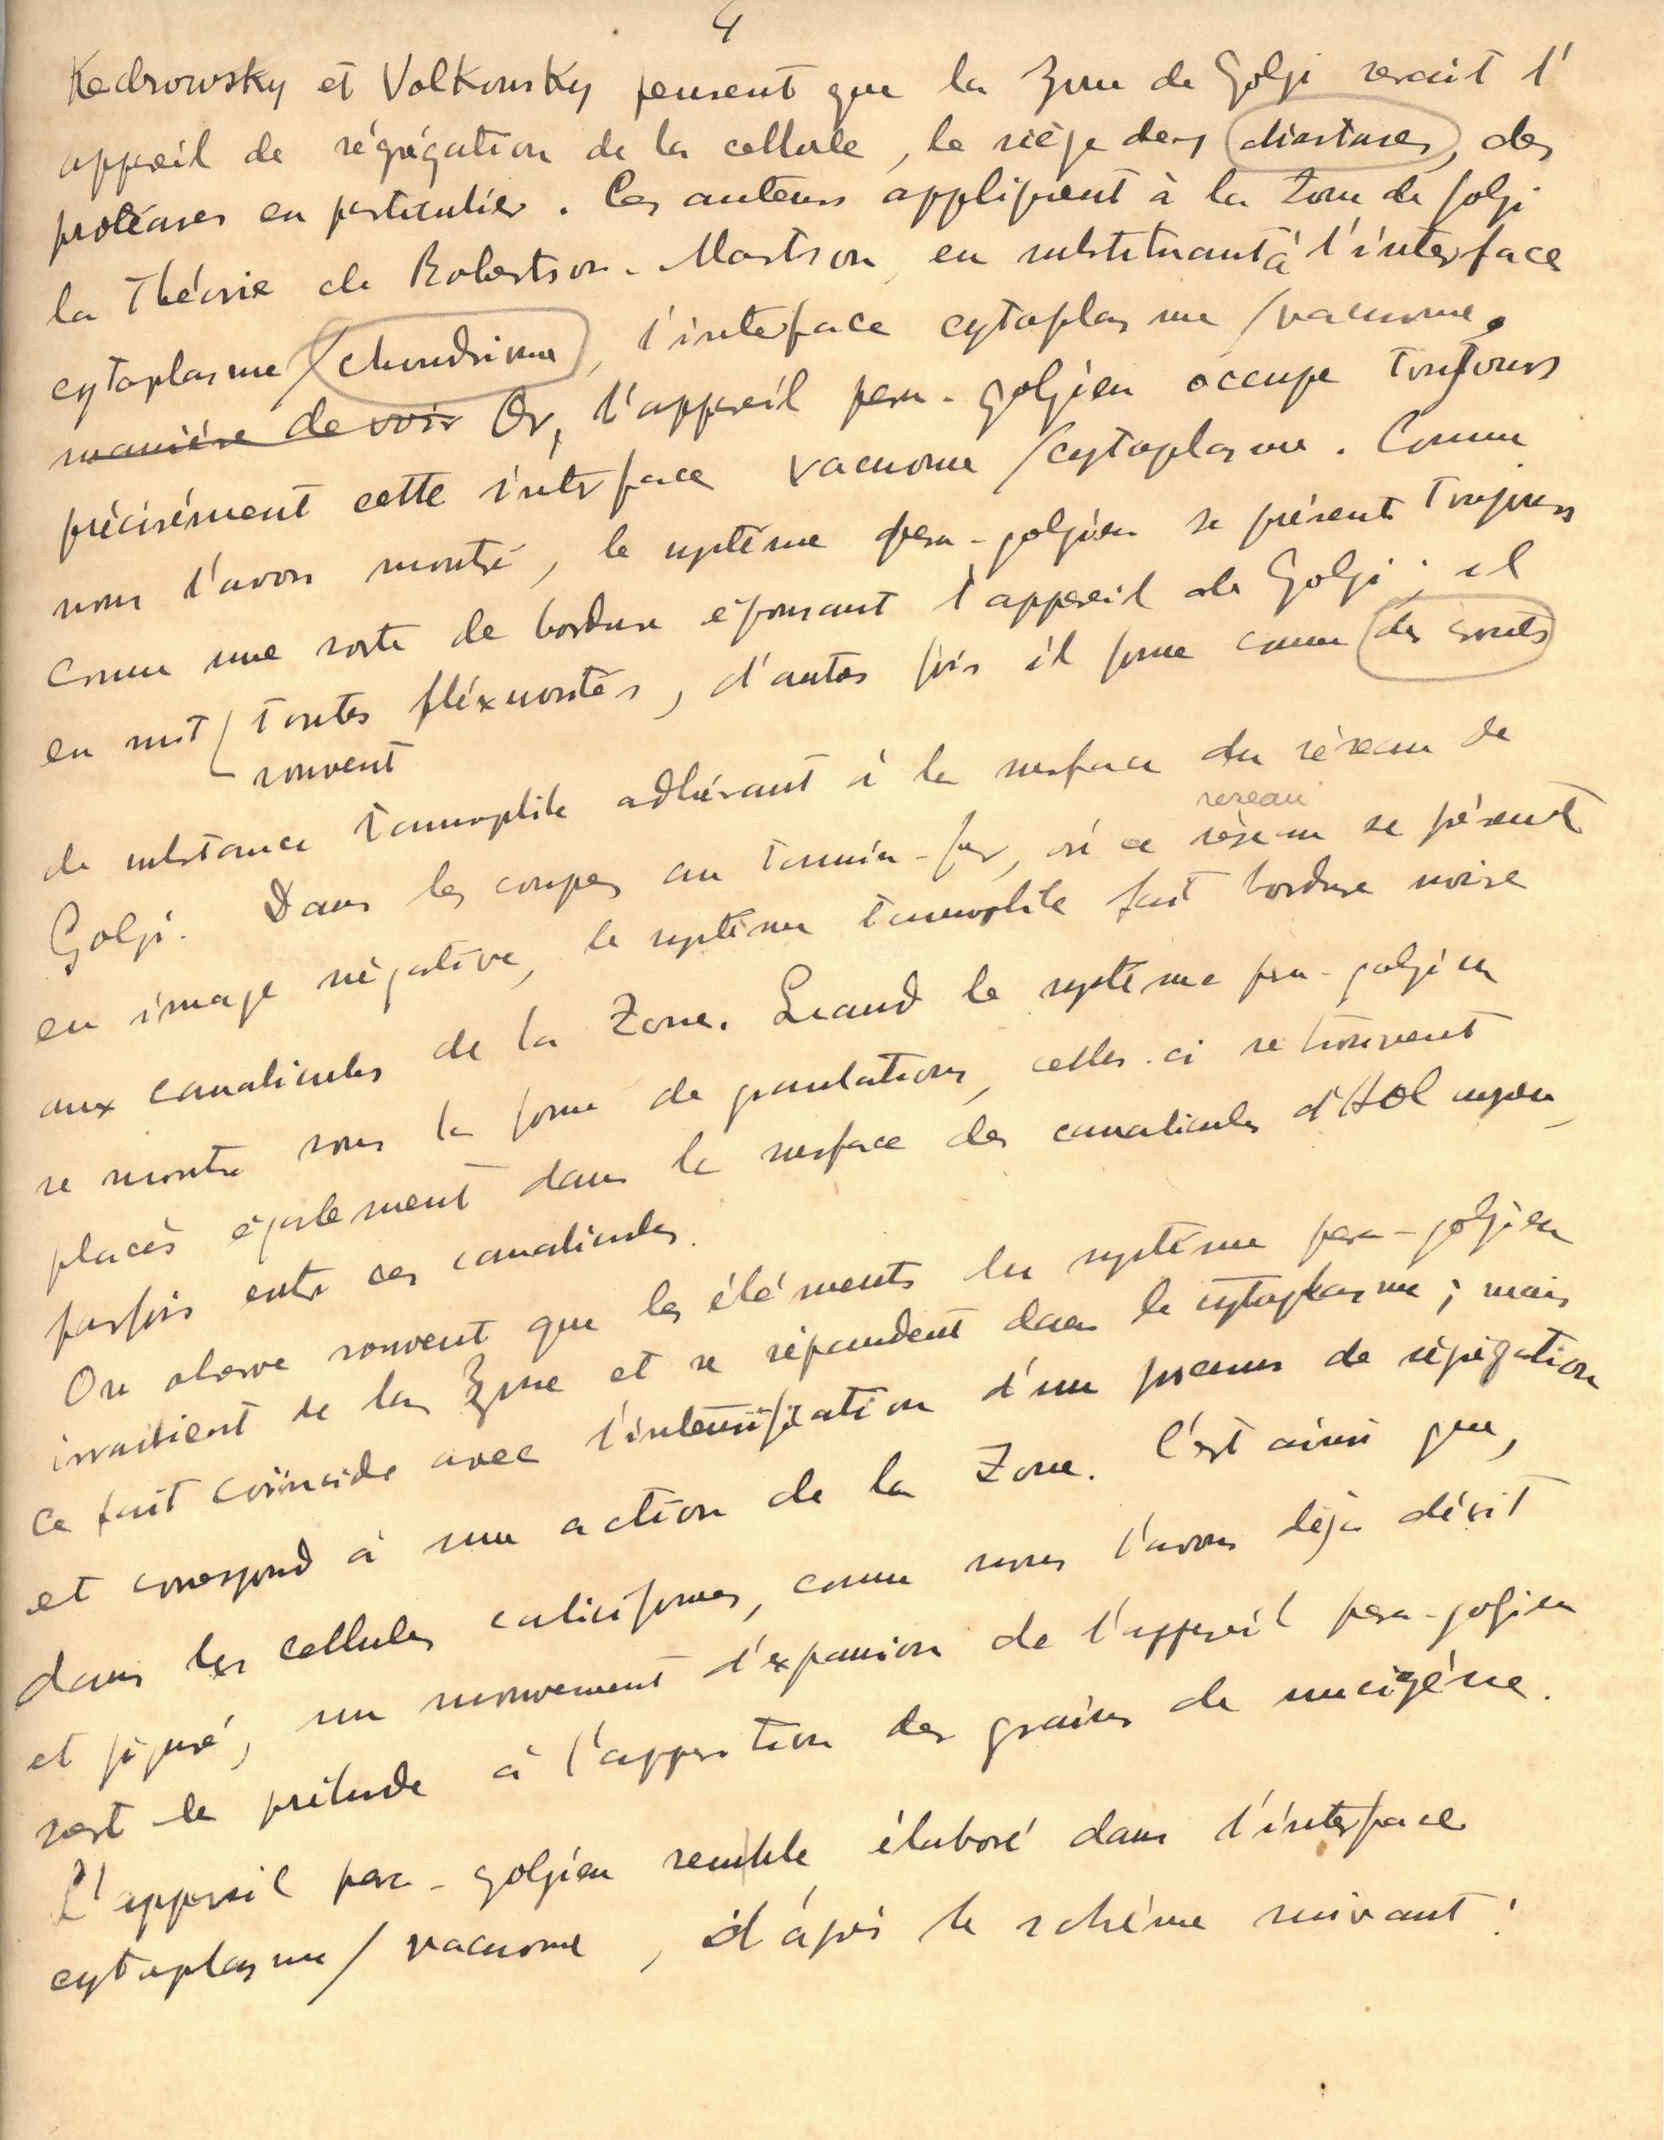 4
Kedrowsky et Volkonsky pensent que la Zone de Golgi serait l'
appareil de ségrégation de la cellule, le siège des diastases, des
protéases en particulier. Ces auteurs appliquent à la Zone de Golgi
la Théorie de Robertson-Marston, en substituant à l'interface
cytoplasme/chondriome, l'interface cytoplasme/vacuome.
manière de voir Or, l'appareil para-golgien occupe toujours
précisément cette interface vacuome/cytoplasme. Comme
nous l'avons montré, le système para-golgien se présente toujours
comme une sorte de bordure épousant l'appareil de Golgi; il
en suit toutes fléxuosités, d'autes fois il forme comme des
souvent
de substance tannophile adhérant à la surface du réseau de
reseau
Golgi. Dans les coupes au tannin-fer, où ce réseau se présente
en image négative, le système tannophile fait bordure noire
aux canalicules de la Zone. Quand le système para-golgien
se montre sous la forme de granulations, celles-ci se trouvent
placés également dans la surface des canalicules d'Holmgren,
parfois entre ces canalicules.
On observe souvent que les éléments du système para-golgien
irradient de la Zone et se répandent dans le cytoplasme; mais
ce fait coïncide avec l'intensification d'un processus de ségrégation
et correspond à une action de la Zone. C'est ainsi que,
dans les cellules caliciformes, comme nous l'avons déjà décrit
et figuré, un mouvement d'expansion de l'appareil para-golgien
sert de prélude à l'apparition des grains de mucigène.
L'appareil para-golgien semble élaboré dans l'interface
cytoplasme/vacuome, d'après le schème suivant: